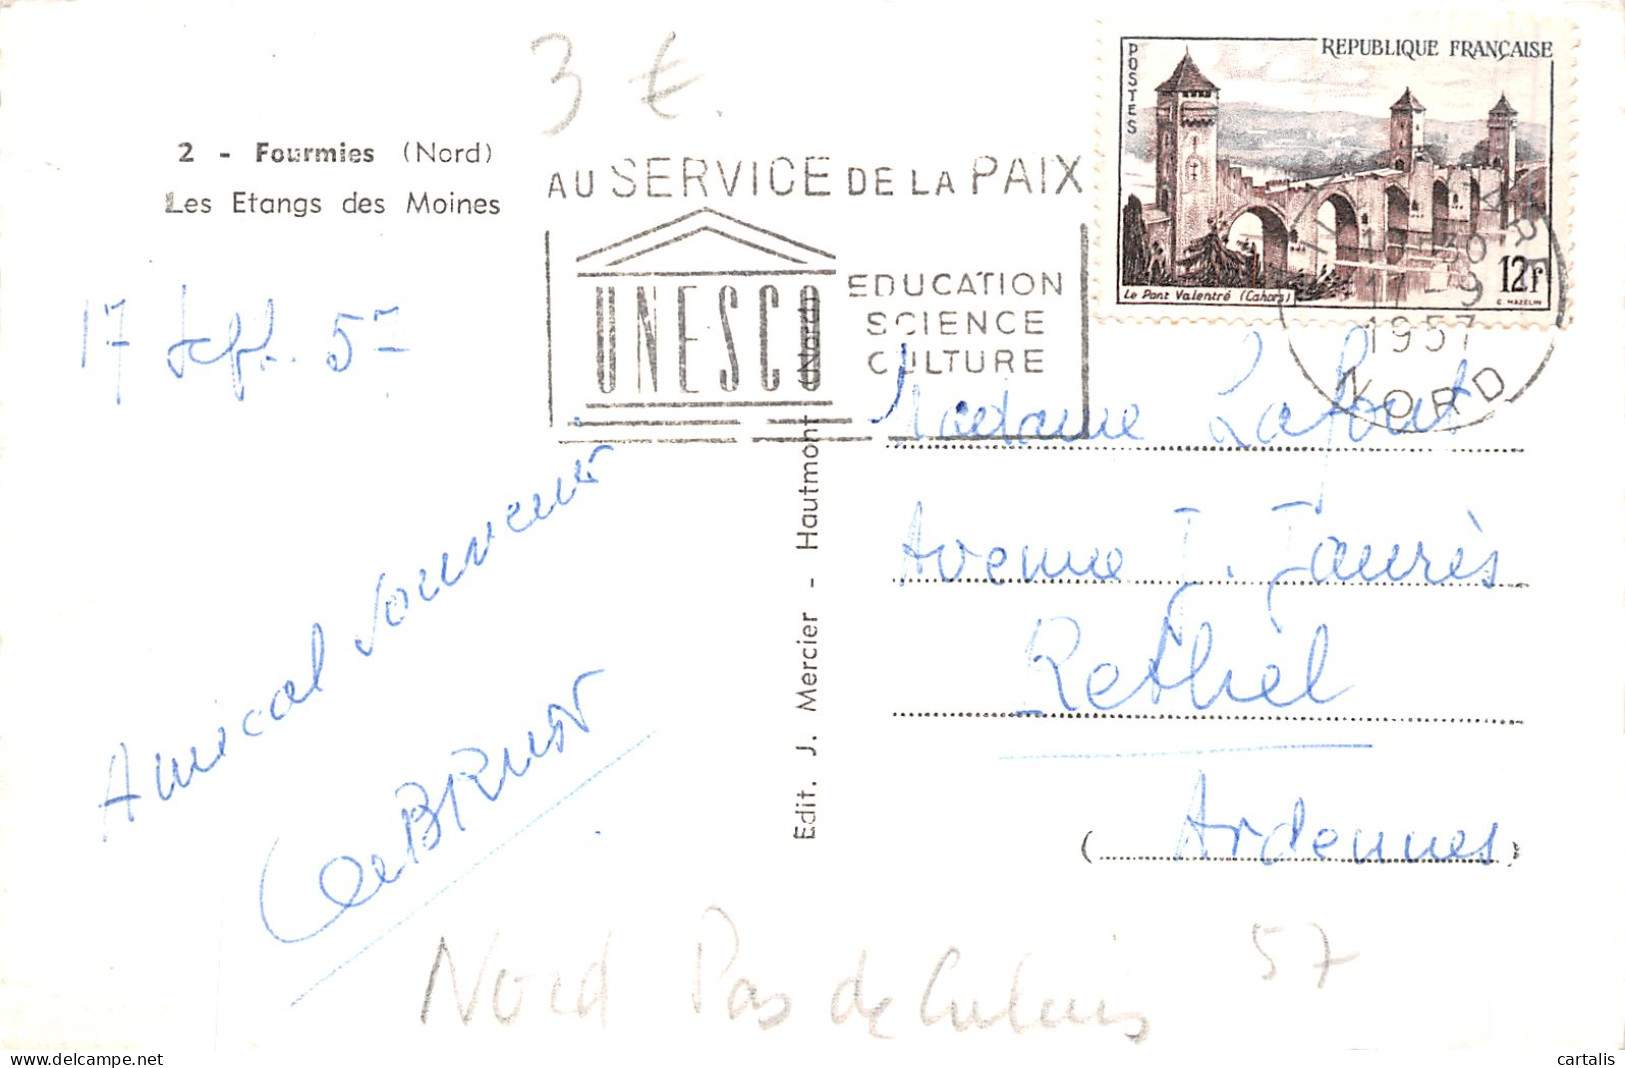 3 €.
2 - Fourmies (Nord)
Les Etangs des Moines
17 sept. 57
Amical souvenir
AU SERVICE DE LA PAIX
UNESCO
EDUCATION
SCIENCE
CULTURE
POSTES
REPUBLIQUE FRANÇAISE
Le Pont Valentré (Cahors)
12f
C. HAZELIN
17 - 9
1957
NORD
Edit. J. Mercier - Hautmont (Nord)
Madame Lafont
Avenue J. Jaurès
Rethel
(Ardennes)
Nord Pas de Calais 57
cartalis